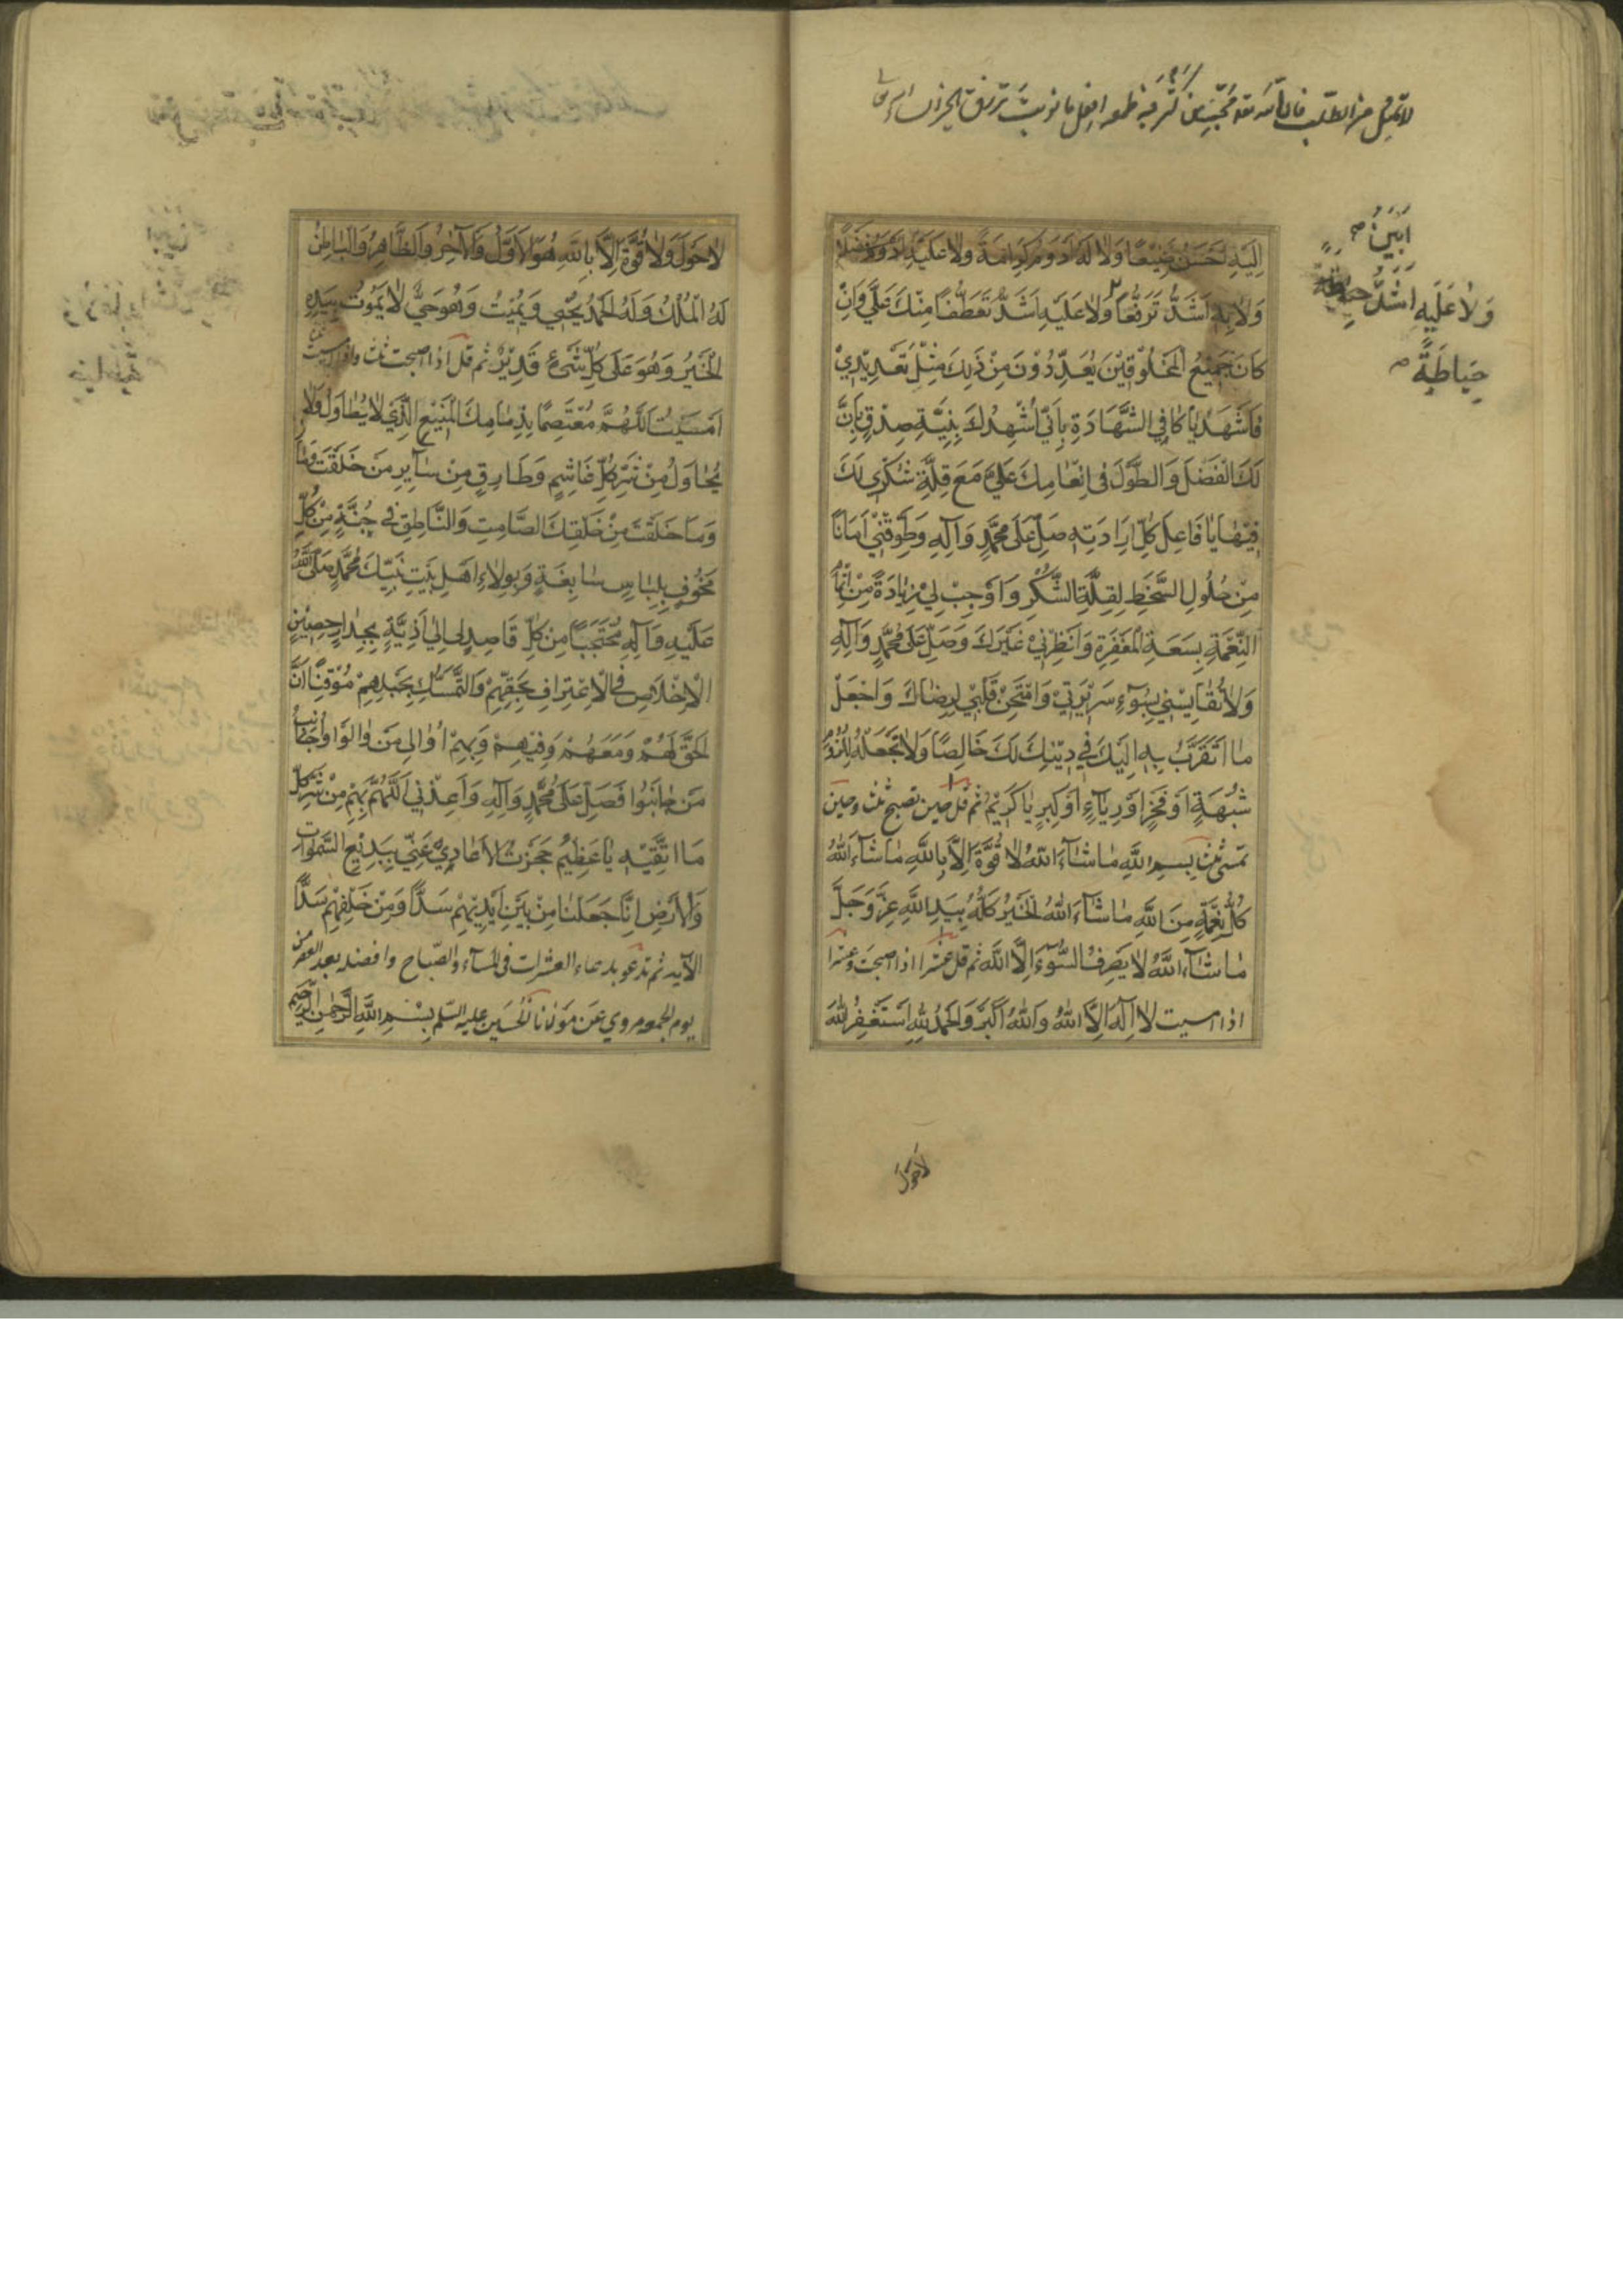 اَبْيَنُ
وَلاٰ عَلَيهِ اَشَدُّ حِيطَةً
حِيَاطَةً
اِلَيْهِ اَحْسَنُ صَنِيْعًا وَلاٰ لَهُ اَدْوَمُ كَرَامَةً وَلاٰ عَلَيْهِ
وَلاٰ بِهِ اَشَدُّ تَرَفُّعًا وَلاٰ عَلَيْهِ اَشَدُّ تَعَطُّفًا مِنْكَ عَلَيَّ وَاِنْ
كانَ جَمِيْعُ الْمَخْلُوقِيْنَ يُعَدِّدُوْنَ مِنْ ذٰلِكَ مِثْلَ تَعْدِيْدِيْ
فَاشْهَدْ يٰا كٰافِي الشَّهَادَةِ بِاَنّي اُشْهِدُكَ بِنِيَّةِ صِدْقٍ بِاَنَّ
لَكَ الْفَضْلَ وَالطَّوْلَ في اِنْعٰامِكَ عَلَيَّ مَعَ قِلَّةِ شُكْرِي لَكَ
فِيْهٰا يٰا فَاعِلَ كُلِّ اِرَادَتِهِ صَلِّ عَلَى مُحَمَّدٍ وَآلِهِ وَطَوِّقْنِي اَمَانًا
مِنْ حُلُولِ السَّخَطِ لِقِلَّةِ الشُّكْرِ وَاَوْجِبْ لِيْ زِيٰادَةً مِنْ اِتْمٰامِ
النِّعْمَةِ بِسَعَةِ الْمَغْفِرَةِ وَاَنْظِرْنِيْ خَيْرَكَ وَصَلِّ عَلَى مُحَمَّدٍ وَآلِهِ
وَلاٰ تُقٰايِسْنِي بِسُوْءِ سَرِيْرَتِيْ وَامْتَحِنْ قَلْبِيْ لِرِضٰاكَ وَاجْعَلْ
مٰا اَتَقَرَّبُ بِهِ اِلَيْكَ فِي دِيْنِكَ لَكَ خَالِصًا وَلاٰ تَجْعَلْهُ لِلُزُوْمِ
شُبْهَةٍ اَوْ فَخْرٍ اَوْ رِيٰاءٍ اَوْ كِبْرٍ يٰا كَرِيْمُ ثم قل حين تصبح ثلث وحين
تمسي ثلث بِسْمِ اللَّهِ مٰا شٰاءَ اللهُ لاٰ قُوَّةَ اِلاَّ بِاللَّهِ مٰا شٰاءَ اللهُ
كُلُّ نِعْمَةٍ مِنَ اللَّهِ مٰا شٰاءَ اللهُ اَلْخَيْرُ كُلُّهُ بِيَدِ اللَّهِ عَزَّ وَجَلَّ
مٰا شٰاءَ اللَّهُ لاٰ يَصْرِفُ السُّوْءَ اِلاَّ اللَّهُ ثم قل عشرا اذا اصبحت وعشرا
اذا امسيت لاٰ اِلٰهَ اِلاَّ اللهُ وَاللهُ اَكْبَرُ وَالْحَمْدُ لِلَّهِ اَسْتَغْفِرُ اللهَ
لاَحَوْلَ
لاٰحَوْلَ وَلاٰ قُوَّةَ اِلاَّ بِاللَّهِ هُوَ الاَوَّلُ وَالاٰخِرُ وَالظَّاهِرُ وَالْبٰاطِنُ
لَهُ الْمُلْكُ وَلَهُ الْحَمْدُ يُحْيِي وَيُمِيْتُ وَهُوَ حَيٌّ لاٰ يَمُوْتُ بِيَدِهِ
الْخَيْرُ وَهُوَ عَلَى كُلِّ شَيْءٍ قَدِيْرٌ ثم قل اذا اصبحت ثلث واذا امسيت
اَمْسَيْتُ اَللَّهُمَّ مُعْتَصِمًا بِذِمٰامِكَ الْمَنِيْعِ الَّذِي لاٰ يُطٰاوَلُ وَلاٰ
يُحٰاوَلُ مِنْ شَرِّ كُلِّ غَاشِمٍ وَطَارِقٍ مِنْ سٰايِرِ مَنْ خَلَقْتَ وَمٰا
وَمَا خَلَقْتَ مِنْ خَلْقِكَ الصَّامِتِ وَالنَّاطِقِ فِي جُنَّةٍ مِنْ كُلِّ
مَخُوْفٍ بِلِبٰاسٍ سٰابِغَةٍ وَبِوِلاٰءِ اَهْلِ بَيْتِ نَبِيِّكَ مُحَمَّدٍ صَلَّى اللهُ
عَلَيْهِ وَآلِهِ مُحْتَجِبًا مِنْ كُلِّ قَاصِدٍ لِي اِلٰى اَذِيَّةٍ بِجِدٰارٍ حَصِيْنٍ
الْاِخْلاَصِ فِي الْاِعْتِرَافِ بِحَقِّهِمْ وَالتَّمَسُّكِ بِحَبْلِهِمْ مُوْقِنًا اَنَّ
الْحَقَّ لَهُمْ وَمَعَهُمْ وَفِيْهِمْ وَبِهِمْ اُوٰالِي مَنْ وٰالَوْا وَاُجٰانِبُ
مَنْ جٰانَبُوا فَصَلِّ عَلَى مُحَمَّدٍ وَآلِهِ وَاَعِذْنِي اَللَّهُمَّ بِهِمْ مِنْ شَرِّ كُلِّ
مَا اَتَّقِيْهِ يٰا عَظِيْمُ حَجَزْتُ الْاَعٰادِيَ عَنِّي بِبَدِيْعِ السَّمٰوَاتِ
وَالْاَرْضِ اِنَّا جَعَلْنٰا مِنْ بَيْنِ اَيْدِيْهِمْ سَدًّا وَمِنْ خَلْفِهِمْ سَدًّا
الآيه ثم تدعو بدعاء العشرات في المسآء والصّباح وافضله بعد العصر من
يوم الجمعه مروي عَنْ مَوْلاٰنَا الْحُسَيْنِ عليه السّلم بِسْمِ اللَّهِ الرَّحْمٰنِ الرَّحِيْمِ